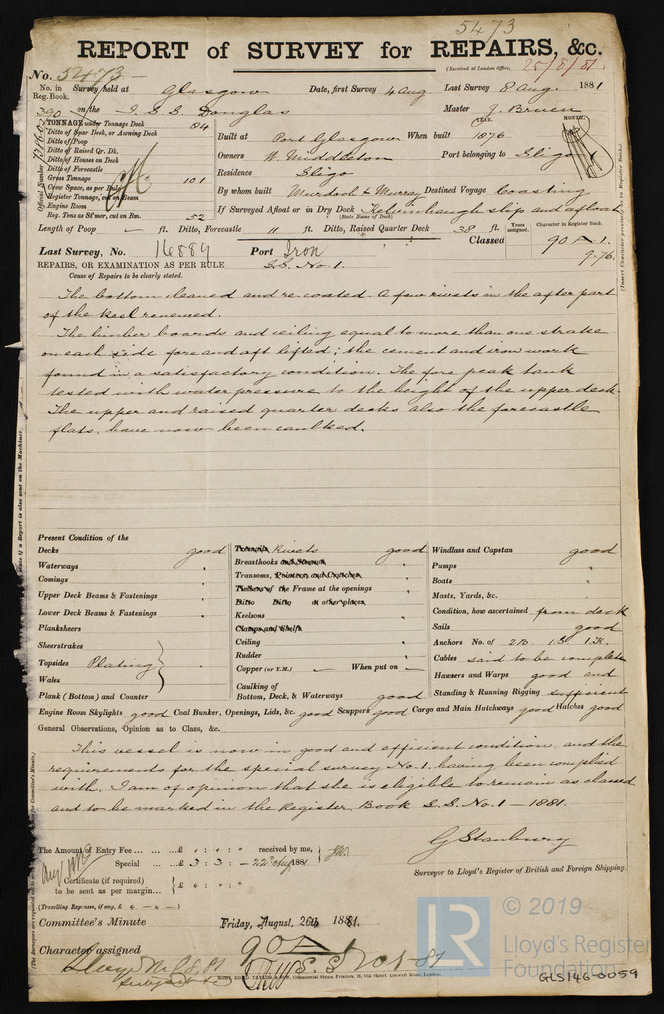 5473
REPORT of SURVEY for REPAIRS, &c.
(Received at London Office, 25/8/81)
No. 5473
No. in Reg. Book. Survey held at Glasgow Date, first Survey 4 Aug Last Survey 8 Aug. 1881
390 on the I.S.S. Douglas Master J. Bruen
TONNAGE under Tonnage Deck 84
Ditto of Spar Deck, or Awning Deck
Ditto of Poop
Ditto of Raised Qr. Dk.
Ditto of Houses on Deck
Ditto of Forecastle
Gross Tonnage 101
Crew Space, as per Rule
Register Tonnage, cut on Beam
Engine Room
Reg. Tons as St'mer, cut on Bm. 52
Official Number
YEAR. MONTH.
Built at Port Glasgow When built 1876
Owners W. Middleton Port belonging to Sligo
Residence Sligo
By whom built Murdoch & Murray Destined Voyage Coasting
If Surveyed Afloat or in Dry Dock Kelvinhaugh slip and afloat
(State Name of Dock)
Length of Poop — ft. Ditto, Forecastle 11 ft. Ditto, Raised Quarter Deck 38 ft. Years assigned. Character in Register Book.
Classed 90 A 1.
9.76.
Last Survey, No. 16889 Port Iron
REPAIRS, OR EXAMINATION AS PER RULE S.S. No. 1.
Cause of Repairs to be clearly stated.
The bottom cleaned and re-coated. A few rivets in the after part
of the keel renewed.
The limber boards and ceiling equal to more than one strake
on each side fore and aft lifted; the cement and iron work
found in a satisfactory condition. The fore peak tank
tested with water pressure to the height of the upper deck.
The upper and raised quarter decks also the forecastle
flats, have now been caulked.
Present Condition of the
Decks good
Waterways "
Comings "
Upper Deck Beams & Fastenings "
Lower Deck Beams & Fastenings "
Planksheers
Sheerstrakes
Topsides Plating "
Wales
Plank (Bottom) and Counter
Treenails Rivets good
Breasthooks and Stemson "
Transoms, Pointers and Crutches "
Timbers of the Frame at the openings "
Ditto Ditto at other places,
Keelsons "
Clamps and Shelfs
Ceiling "
Rudder "
Copper (or Y.M.) — When put on —
Caulking of
Bottom, Deck, & Waterways good
Windlass and Capstan good
Pumps "
Boats "
Masts, Yards, &c. "
Condition, how ascertained from deck
Sails good
Anchors No. of 2B. 1S. 1K.
Cables said to be complete
Hawsers and Warps good and
Standing & Running Rigging sufficient
Engine Room Skylights good Coal Bunker, Openings, Lids, &c. good Scuppers good Cargo and Main Hatchways good Hatches good
General Observations, Opinion as to Class, &c.
This vessel is now in good and efficient condition, and the
requirements for the special survey No. 1. having been complied
with. I am of opinion that she is eligible to remain as classed
and to be marked in the Register Book S.S. No. 1 — 1881.
The Amount of Entry Fee ... ... ...£ : : received by me,
Special ... ...£ 3 : 3 : — 22 Aug 1881
Certificate (if required)
to be sent as per margin... £
(Travelling Expenses, if any, £ )
G Stanbury
Surveyor to Lloyd's Register of British and Foreign Shipping.
Committee's Minute Friday, August, 26th 1881.
Character assigned 90A1
© 2019
LR
Lloyd's Register
Foundation
GLS146-0059